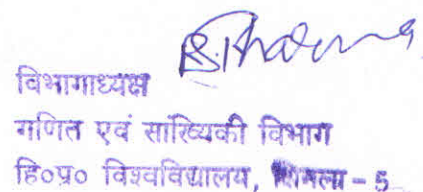 विभागाध्यक्ष
गणित एवं सांख्यिकी विभाग
हि०प्र० विश्वविद्यालय, शिमला – 5